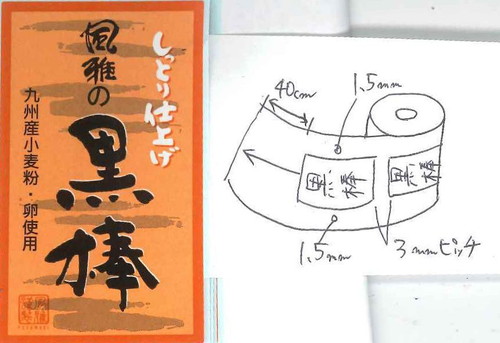 しっとり仕上げ
風雅の
黒棒
九州産小麦粉・卵使用
40cm
1.5mm
黒棒
黒棒
1.5mm
3mmピッチ